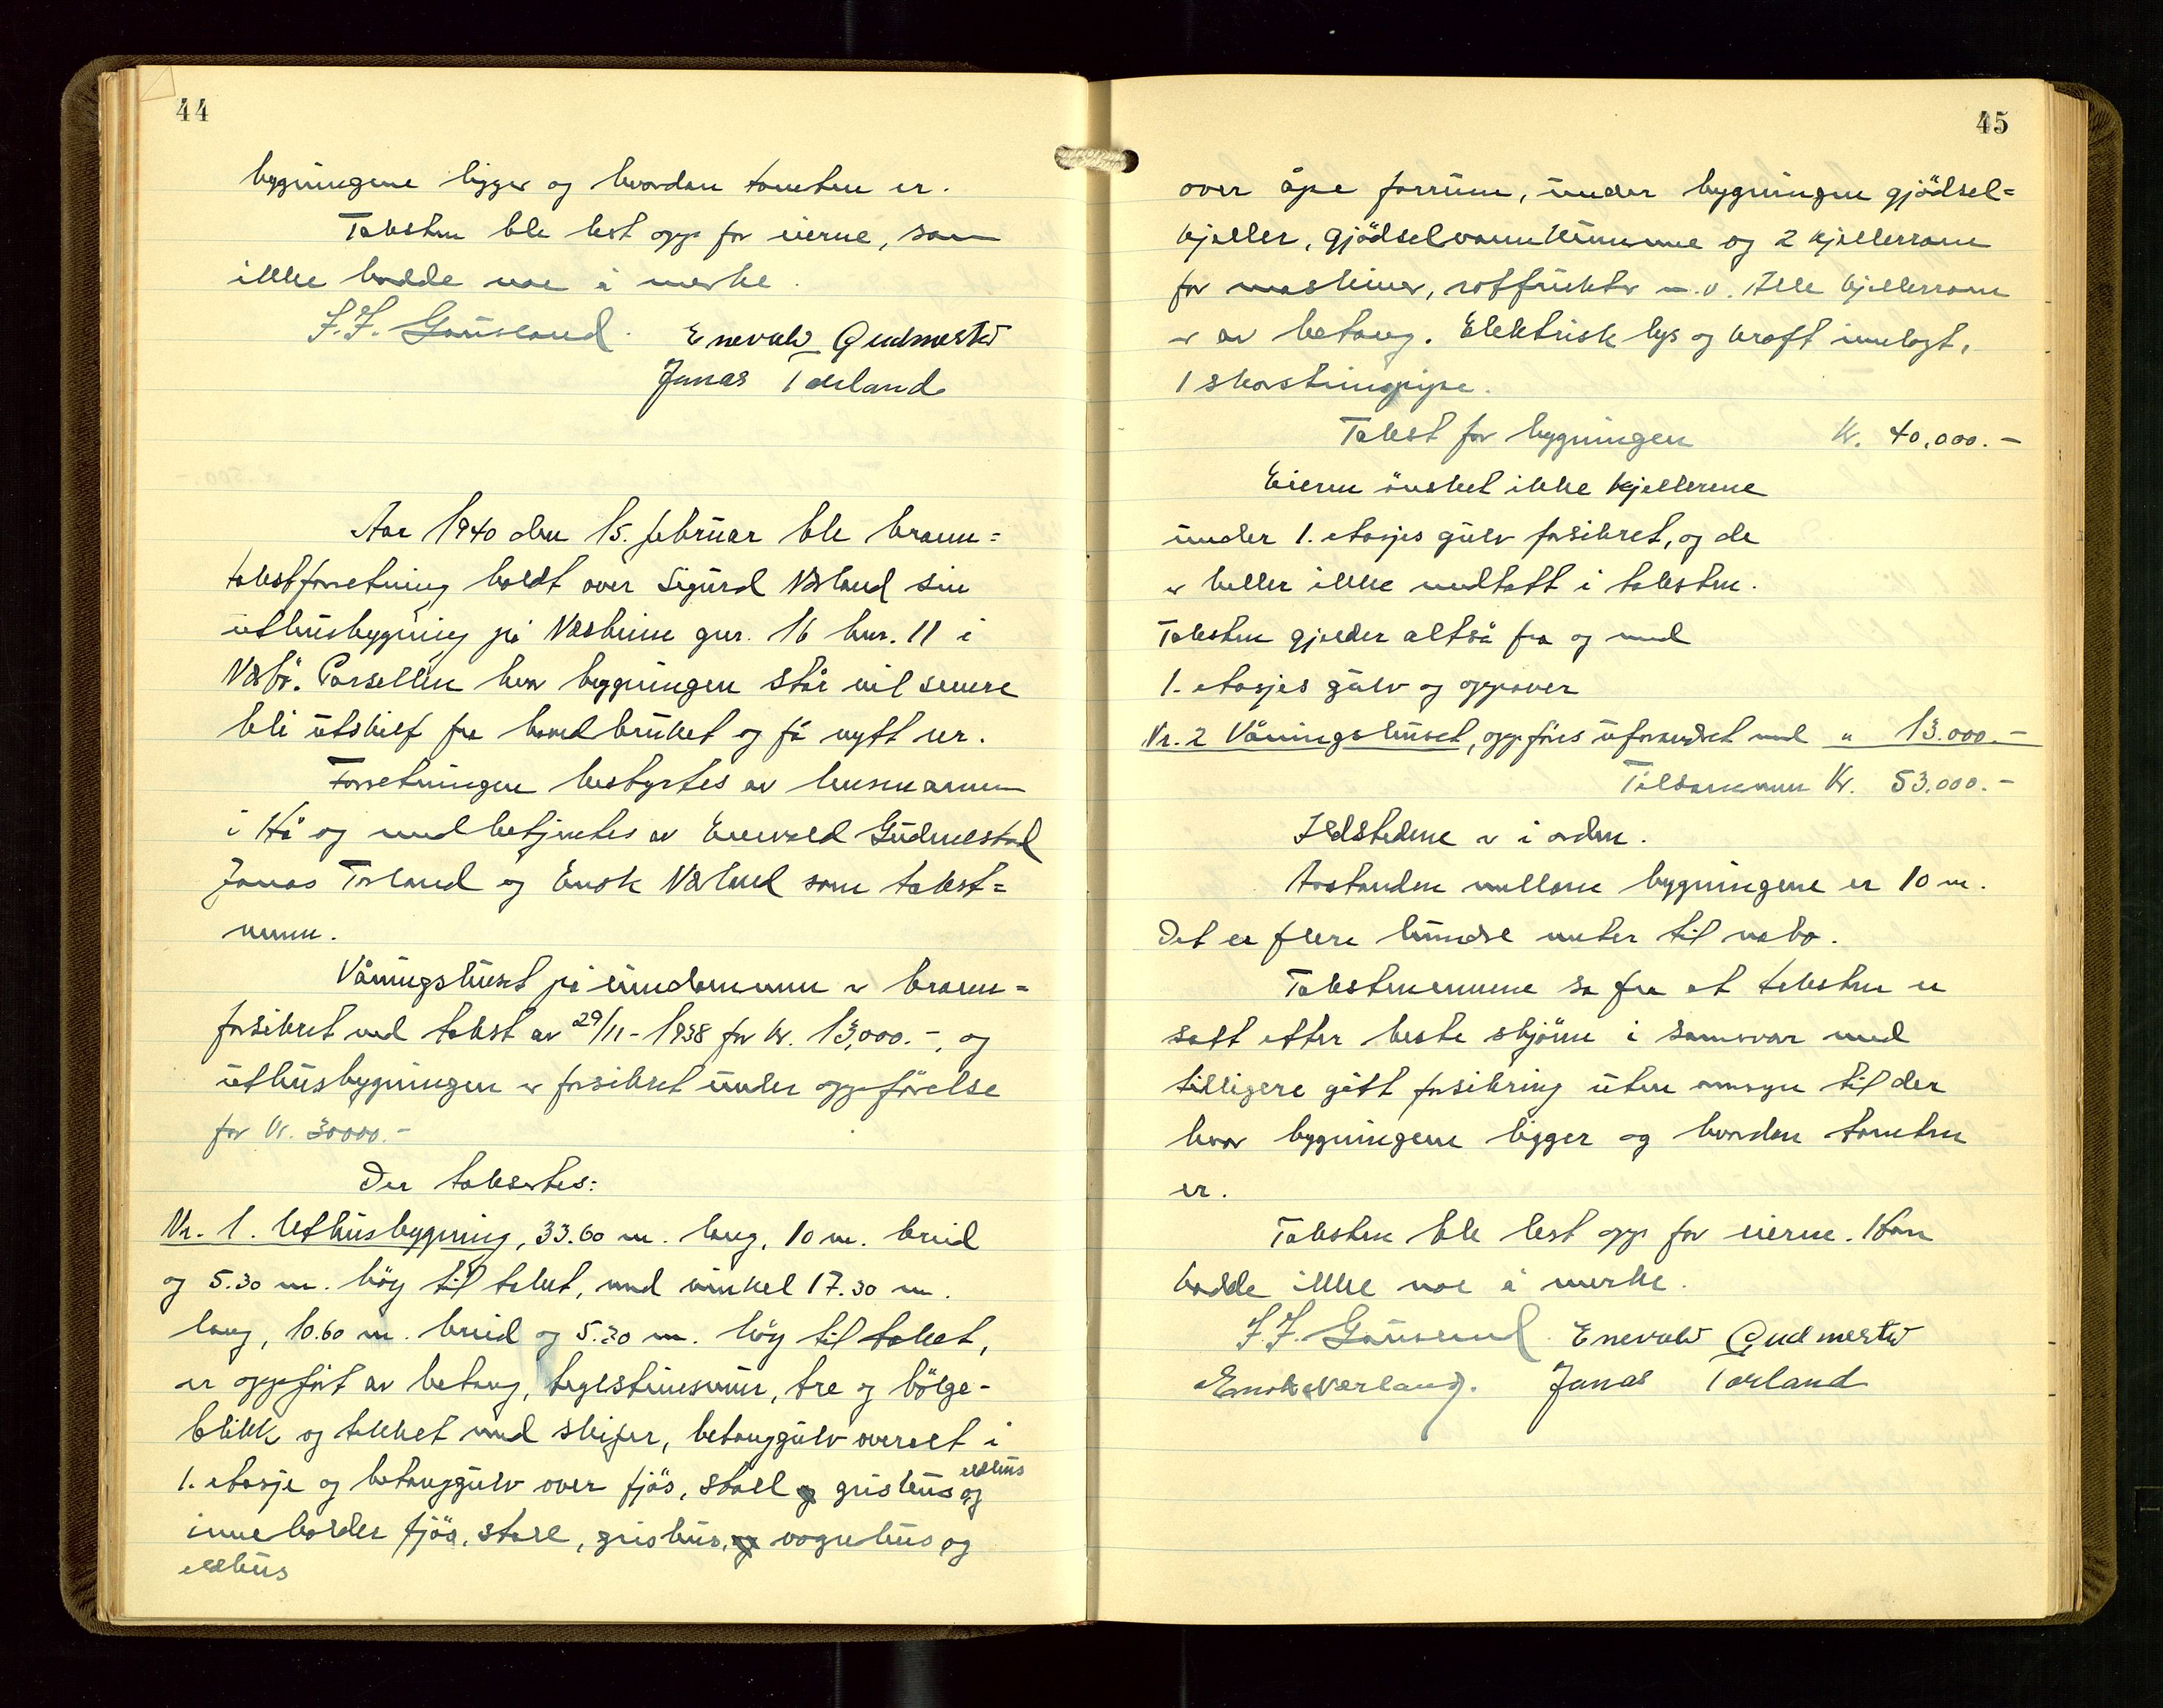 44
bygningene ligger og hvordan tomten er.
Taksten ble lest opp for eierne, som
ikke hadde noe å merke.
J. J. Gausland. Enevald Gudmestad
Jonas Torland
Aar 1940 den 15. februar ble brann=
takstforretning holdt over Sigurd Nærland sin
uthusbygning på Næsheim gnr. 16 bnr. 11 i
Nærbø. Parsellen hvor bygningen står vil senere
bli utskilt fra hovedbruket og få nytt nr.
Forretningen bestyrtes av lensmannen
i Hå og medbetjentes av Enevald Gudmestad
Jonas Torland og Enok Nærland som takst=
menn.
Våningshuset på eiendommen er brann=
forsikret ved takst av 29/11-1938 for kr. 13,000.-, og
uthusbygningen er forsikret under oppførelse
for kr. 30000.-
Der taksertes:
Nr. 1. Uthusbygning, 33.60 m. lang, 10 m. breid
og 5.30 m. høg til taket, med vinkel 17.30 m.
lang, 10.60 m. breid og 5.30 m. høg til taket,
er oppført av betong, teglsteinsmur, tre og bølge-
blikk og tekket med skifer, betonggulv overalt i
1. etasje og betonggulv over fjøs, stall og grishus og eldhus
inneholder fjøs, stall, grishus, og vognhus og
eldhus
45
over åpe forrum, under bygningen gjødsel=
kjeller, gjødselvannkummene og 2 kjellerrom
for maskiner, rotfrukter m.v. Alle kjellerrom
er av betong. Elektrisk lys og kraft innlagt,
1 skorsteinspipe.
Takst for bygningen Kr. 40,000.-
Eieren ønsket ikke kjellerne
under 1. etasjes gulv forsikret, og de
er heller ikke medtatt i taksten.
Taksten gjelder altså fra og med
1. etasjes gulv og oppover
Nr. 2 Våningshuset, oppføres uforandret med " 13.000.-
Tilsammen Kr. 53.000.-
Ildstedene er i orden.
Avstanden mellom bygningene er 10 m.
Det er flere hundre meter til nabo.
Takstmennene sa fra at taksten er
satt etter beste skjønn i samsvar med
tidligere gitt forsikring uten omsyn til der
hvor bygningene ligger og hvordan tomten
er.
Taksten ble lest opp for eierne. Han
hadde ikke noe å merke.
J. J. Gausland. Enevald Gudmestad
Enok Nærland. Jonas Torland